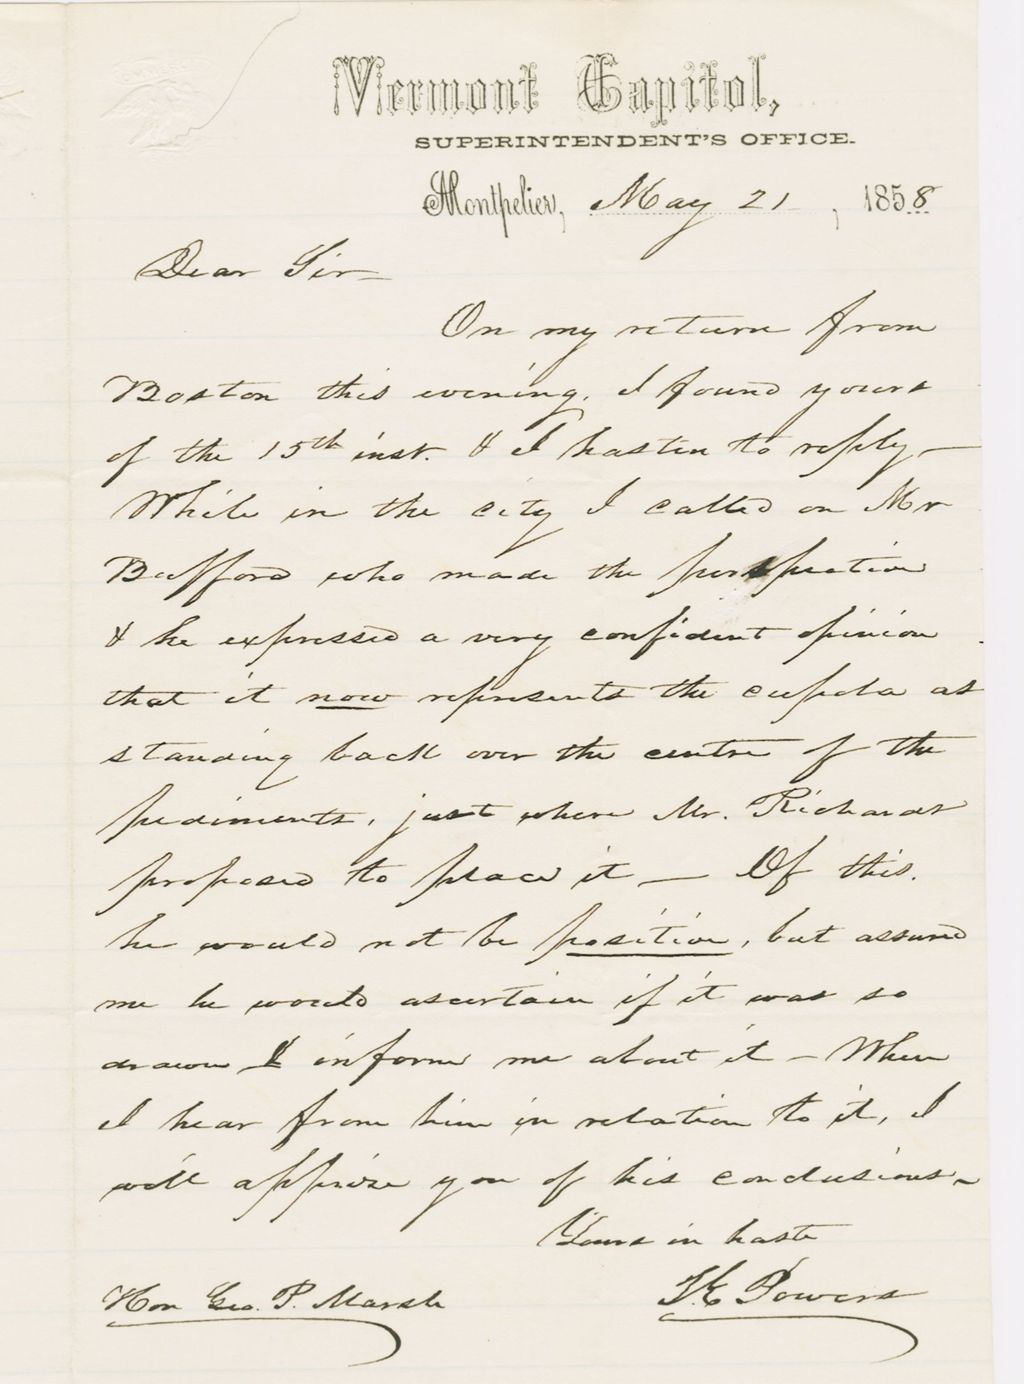 Vermont Capitol,
SUPERINTENDENT'S OFFICE.
Montpelier, May 21, 1858
Dear Sir—
On my return from
Boston this evening, I found yours
of the 15th inst. & I hasten to reply—
While in the city I called on Mr
Bufford who made the perspective
& he expressed a very confident opinion
that it now represents the cupola as
standing back over the centre of the
pediments, just where Mr. Richards
proposed to place it — Of this,
he would not be positive, but assured
me he would ascertain if it was so
drawn & inform me about it — When
I hear from him in relation to it, I
will apprize you of his conclusions—
Yours in haste
Hon Geo. P. Marsh
T. E. Powers